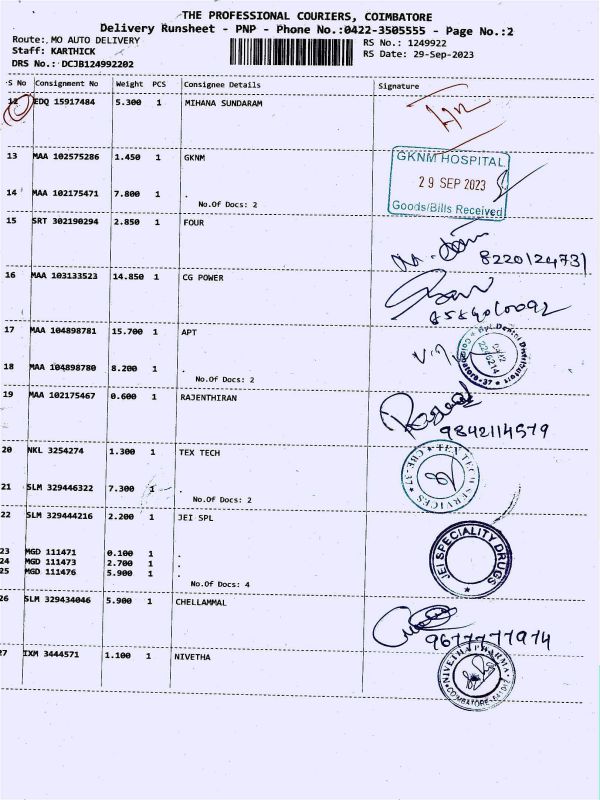 THE PROFESSIONAL COURIERS, COIMBATORE
Delivery Runsheet - PNP - Phone No.:0422-3505555 - Page No.:2
Route: MO AUTO DELIVERY RS No.: 1249922
Staff: KARTHICK RS Date: 29-Sep-2023
DRS No.: DCJB124992202
S No Consignment No Weight PCS Consignee Details Signature
12 EDQ 15917484 5.300 1 MIHANA SUNDARAM
13 MAA 102575286 1.450 1 GKNM
GKNM HOSPITAL
29 SEP 2023
Goods/Bills Received
14 MAA 102175471 7.800 1 .
No.Of Docs: 2
15 SRT 302190294 2.850 1 FOUR
8220124731
16 MAA 103133523 14.850 1 CG POWER
17 MAA 104898781 15.700 1 APT
18 MAA 104898780 8.200 1 .
No.Of Docs: 2
19 MAA 102175467 0.600 1 RAJENTHIRAN
9842114579
20 NKL 3254274 1.300 1 TEX TECH
TEX TECH SERVICES
CBE-37
21 SLM 329446322 7.300 1 .
No.Of Docs: 2
22 SLM 329444216 2.200 1 JEI SPL
JEI SPECIALITY DRUGS
23 MGD 111471 0.100 1 .
24 MGD 111473 2.700 1 .
25 MGD 111476 5.900 1 .
No.Of Docs: 4
26 SLM 329434046 5.900 1 CHELLAMMAL
9677777974
27 IXM 3444571 1.100 1 NIVETHA
NIVETHA PHARMA